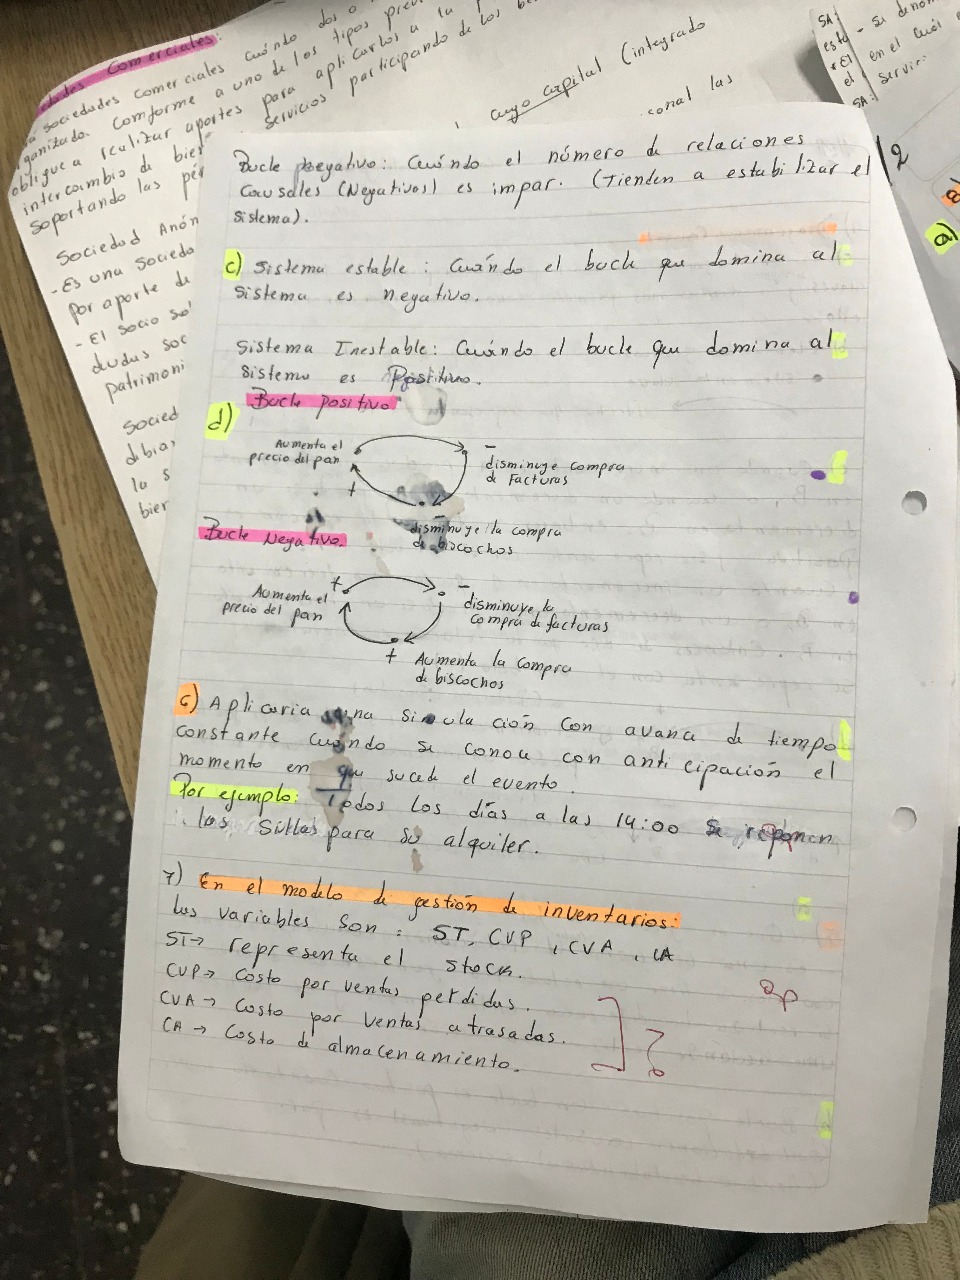 edades Comerciales:
sociedades comerciales cuándo dos o
ganizada. Comforme a uno de los tipos
obligue a realizar aportes para aplicarlos a la
intercambio de bier servicios participando de los
soportando las
Sociedad Anón
-Es una socieda
Por aporte de
- El socio
dudas soc
patrimoni
Socied
la s
bier
cuyo capital (integrado
conal las
SA:
- Se deno
en el cuál
el servici
SA:
2
a)
Bucle Negativo: Cuándo el número de relaciones
Causales (Negativas) es impar. (Tienden a estabilizar el
sistema).
c) Sistema estable: Cuándo el bucle que domina al
sistema es negativo.
Sistema Inestable: Cuándo el bucle que domina al
sistema es Positivo.
Bucle positivo
d)
Aumenta el
precio del pan
+
-
disminuye compra
de Facturas
-
disminuye la compra
de biscochos
Bucle Negativo.
Aumenta el
precio del pan
+
-
disminuye la
compra de facturas
+ Aumenta la compra
de biscochos
6) Aplicaria una simulación con avance de tiempo
constante cuándo se conoce con anticipación el
momento en que sucede el evento.
Por ejemplo: Todos los días a las 14:00 se reponen
las sillas para su alquiler.
7) En el modelo de gestión de inventarios:
las variables son: ST, CVP, CVA, CA
ST→ representa el stock.
CVP→ Costo por ventas perdidas.
CVA→ Costo por ventas atrasadas.
CA→ Costo de almacenamiento.
?